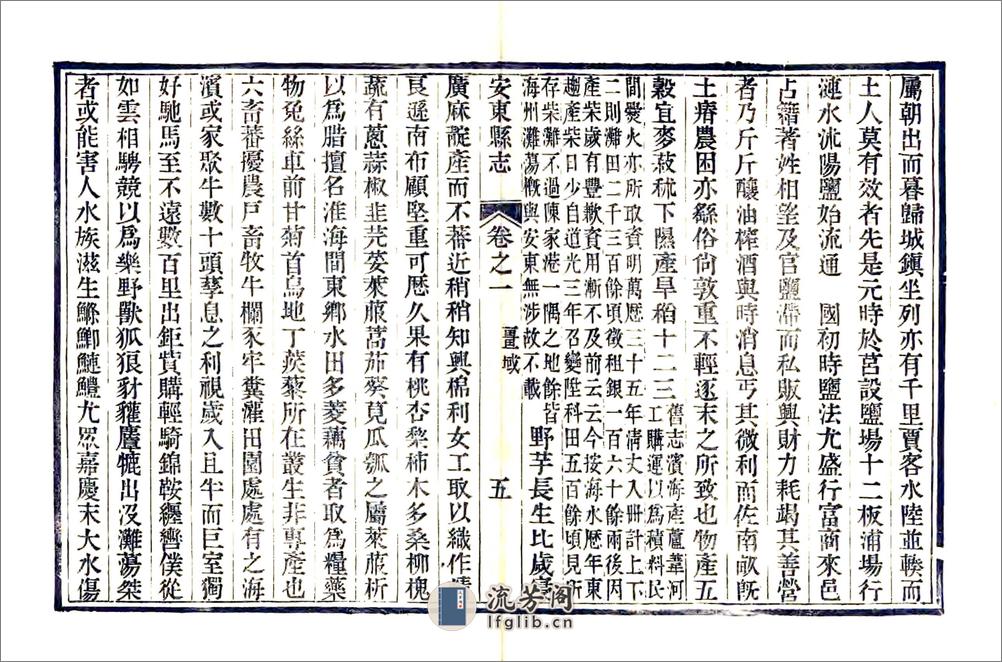 屬朝出而暮歸城鎮坐列亦有千里賈客水陸並輳而
土人莫有效者先是元時於莒設鹽場十二板浦場行
漣水沭陽鹽始流通 國初時鹽法尤盛行富商來邑
占籍著姓相望及官鹽滯而私販興財力耗竭其善營
者乃斤斤釀油榨酒與時消息丐其微利而佐南畝旣
土瘠農困亦繇俗尙敦重不輕逐末之所致也物產五
穀宜麥菽秫下隰產旱稻十二三
舊志濱海產蘆葦河
工購運以爲積料民
間爨火亦所取資明萬歷三十五年淸丈入冊計上下
二則灘田二千三百餘頃徵租銀一百六十兩後因
產柴歲有豐歉資用漸不及前云云今按海水歷年東
趨產柴日少自道光三年召變陞科田五百餘頃見所
存柴灘不過陳家港一隅之地餘皆
海州灘蕩槪與安東無涉故不載
野芋長生比歲
安東縣志
卷之一
疆域
五
廣麻靛產而不蕃近稍稍知興棉利女工取以織作
良遜南布顧堅重可歷久果有桃杏棃柿木多桑柳槐
蔬有蔥蒜椒韭芫荽萊菔蒿茄葵莧瓜瓠之屬萊菔析
以爲腊擅名淮海間東鄉水田多菱藕貧者取爲糧藥
物兔絲車前甘菊首烏地丁蒺藜所在叢生非專產也
六畜蕃擾農戶畜牧牛欄豕牢糞灌田園處處有之海
濱或家聚牛數十頭孳息之利視歲入且半而巨室獨
好馳馬至不遠數百里出鉅貲購輕騎錦鞍纒轡僕從
如雲相騁競以爲樂野獸狐狼豺獾麞𪊍出沒灘蕩桀
者或能害人水族滋生鰷鯽鰱鱧尤眾嘉慶末大水傷
流芳阁
lfglib.cn